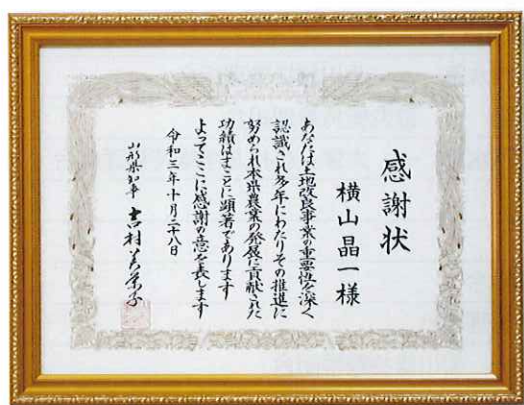 感謝状
横山晶一様
あなたは土地改良事業の重要性を深く
認識され多年にわたりその推進に
努められ本県農業の発展に貢献された
功績はまことに顕著であります
よってここに感謝の意を表します
令和三年十月二十八日
山形県知事 吉村美栄子